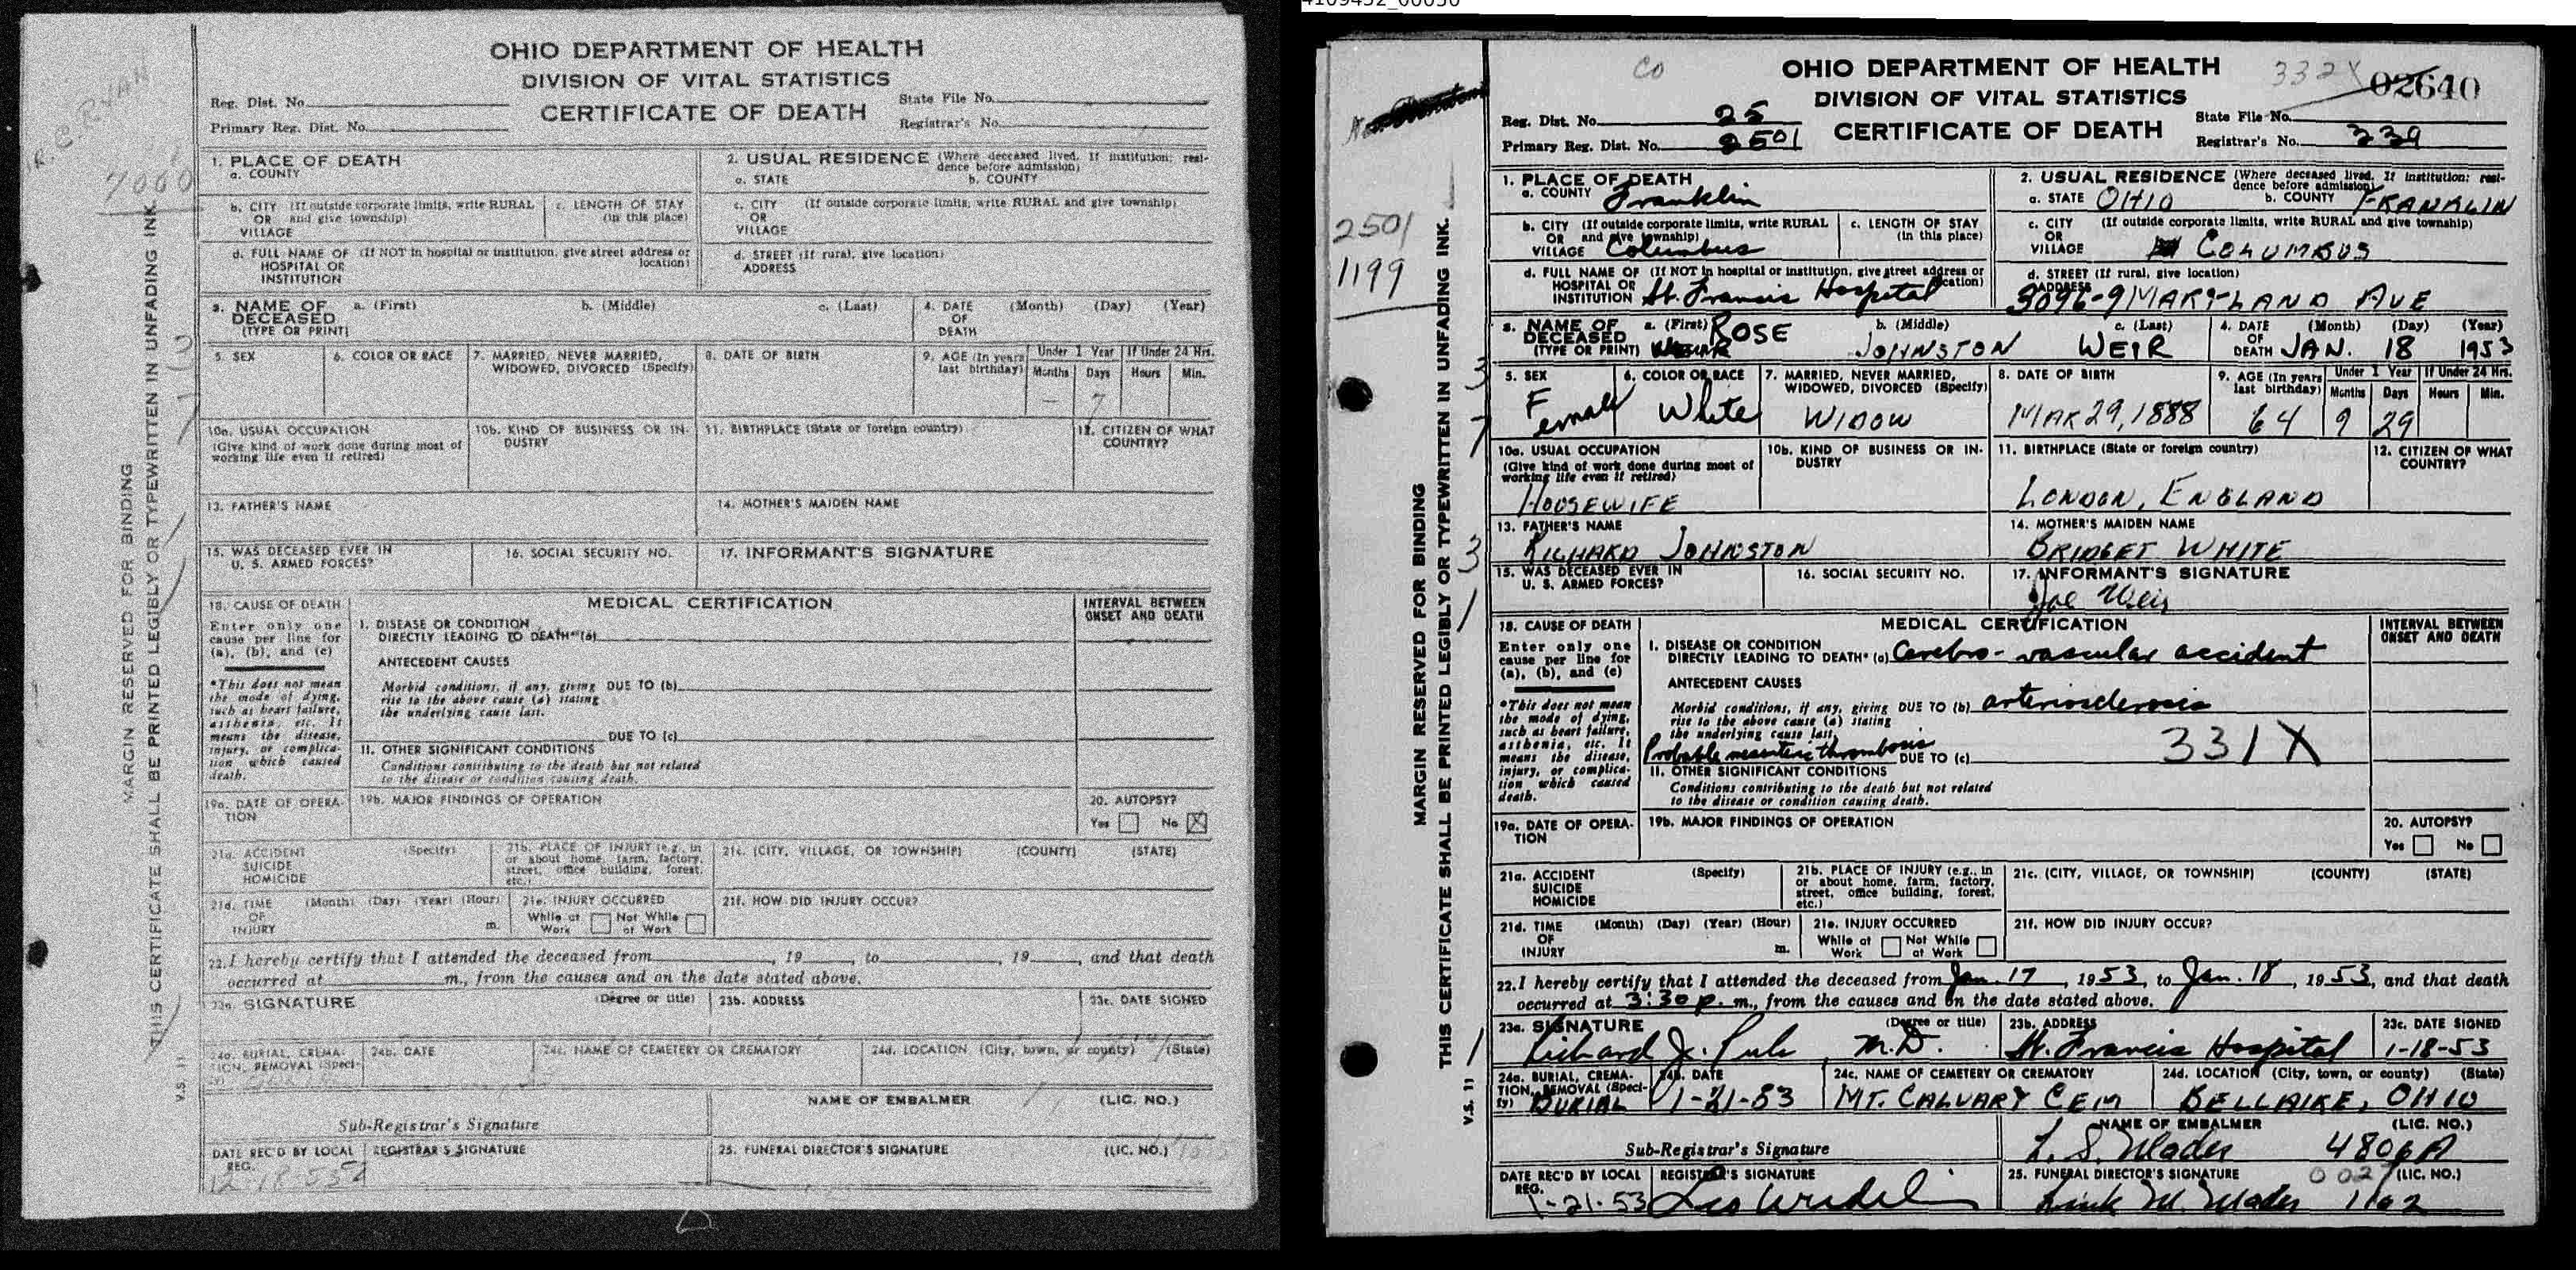 OHIO DEPARTMENT OF HEALTH
DIVISION OF VITAL STATISTICS
CERTIFICATE OF DEATH
Reg. Dist. No.
Primary Reg. Dist. No.
State File No.
Registrar's No.
7000
1. PLACE OF DEATH
a. COUNTY
b. CITY (If outside corporate limits, write RURAL
OR and give township)
VILLAGE
c. LENGTH OF STAY
(in this place)
d. FULL NAME OF (If NOT in hospital or institution, give street address or
HOSPITAL OR location)
INSTITUTION
2. USUAL RESIDENCE (Where deceased lived. If institution: resi-
dence before admission)
a. STATE b. COUNTY
c. CITY (If outside corporate limits, write RURAL and give township)
OR
VILLAGE
d. STREET (If rural, give location)
ADDRESS
3. NAME OF a. (First) b. (Middle) c. (Last)
DECEASED
(TYPE OR PRINT)
4. DATE (Month) (Day) (Year)
OF
DEATH
5. SEX
6. COLOR OR RACE
7. MARRIED, NEVER MARRIED,
WIDOWED, DIVORCED (Specify)
8. DATE OF BIRTH
9. AGE (In years
last birthday)
Under 1 Year
Months Days
If Under 24 Hrs.
Hours Min.
7
10a. USUAL OCCUPATION
(Give kind of work done during most of
working life even if retired)
10b. KIND OF BUSINESS OR IN-
DUSTRY
11. BIRTHPLACE (State or foreign country)
12. CITIZEN OF WHAT
COUNTRY?
13. FATHER'S NAME
14. MOTHER'S MAIDEN NAME
15. WAS DECEASED EVER IN
U. S. ARMED FORCES?
16. SOCIAL SECURITY NO.
17. INFORMANT'S SIGNATURE
18. CAUSE OF DEATH
Enter only one
cause per line for
(a), (b), and (c)
*This does not mean
the mode of dying,
such as heart failure,
asthenia, etc. It
means the disease,
injury, or complica-
tion which caused
death.
MEDICAL CERTIFICATION
INTERVAL BETWEEN
ONSET AND DEATH
I. DISEASE OR CONDITION
DIRECTLY LEADING TO DEATH* (a)
ANTECEDENT CAUSES
Morbid conditions, if any, giving DUE TO (b)
rise to the above cause (a) stating
the underlying cause last.
DUE TO (c)
II. OTHER SIGNIFICANT CONDITIONS
Conditions contributing to the death but not related
to the disease or condition causing death.
19a. DATE OF OPERA-
TION
19b. MAJOR FINDINGS OF OPERATION
20. AUTOPSY?
Yes No X
21a. ACCIDENT (Specify)
SUICIDE
HOMICIDE
21b. PLACE OF INJURY (e.g., in
or about home, farm, factory,
street, office building, forest,
etc.)
21c. (CITY, VILLAGE, OR TOWNSHIP) (COUNTY) (STATE)
21d. TIME (Month) (Day) (Year) (Hour)
OF
INJURY m.
21e. INJURY OCCURRED
While at Not While
Work at Work
21f. HOW DID INJURY OCCUR?
22. I hereby certify that I attended the deceased from , 19 , to , 19 , and that death
occurred at m., from the causes and on the date stated above.
23a. SIGNATURE (Degree or title)
23b. ADDRESS
23c. DATE SIGNED
24a. BURIAL, CREMA-
TION, REMOVAL (Speci-
fy)
24b. DATE
24c. NAME OF CEMETERY OR CREMATORY
24d. LOCATION (City, town, or county) (State)
Sub-Registrar's Signature
NAME OF EMBALMER (LIC. NO.)
DATE REC'D BY LOCAL
REG.
REGISTRAR'S SIGNATURE
25. FUNERAL DIRECTOR'S SIGNATURE (LIC. NO.)
MARGIN RESERVED FOR BINDING
THIS CERTIFICATE SHALL BE PRINTED LEGIBLY OR TYPEWRITTEN IN UNFADING INK.
V.S. 11
CO
OHIO DEPARTMENT OF HEALTH
DIVISION OF VITAL STATISTICS
CERTIFICATE OF DEATH
332X 02640
Reg. Dist. No. 25
Primary Reg. Dist. No. 2501
State File No.
Registrar's No. 239
2501
1199
1. PLACE OF DEATH
a. COUNTY Franklin
b. CITY (If outside corporate limits, write RURAL
OR and give township)
VILLAGE Columbus
c. LENGTH OF STAY
(in this place)
d. FULL NAME OF (If NOT in hospital or institution, give street address or
HOSPITAL OR location)
INSTITUTION St. Francis Hospital
2. USUAL RESIDENCE (Where deceased lived. If institution: resi-
dence before admission)
a. STATE OHIO b. COUNTY FRANKLIN
c. CITY (If outside corporate limits, write RURAL and give township)
OR
VILLAGE COLUMBUS
d. STREET (If rural, give location)
ADDRESS 3096-9 MARYLAND AVE
3. NAME OF a. (First) b. (Middle) c. (Last)
DECEASED
(TYPE OR PRINT) ROSE JOHNSTON WEIR
4. DATE (Month) (Day) (Year)
OF
DEATH JAN. 18 1953
5. SEX
Female
6. COLOR OR RACE
White
7. MARRIED, NEVER MARRIED,
WIDOWED, DIVORCED (Specify)
WIDOW
8. DATE OF BIRTH
MAR 29, 1888
9. AGE (In years
last birthday)
Under 1 Year
Months Days
If Under 24 Hrs.
Hours Min.
64 9 29
10a. USUAL OCCUPATION
(Give kind of work done during most of
working life even if retired)
HOUSEWIFE
10b. KIND OF BUSINESS OR IN-
DUSTRY
11. BIRTHPLACE (State or foreign country)
LONDON, ENGLAND
12. CITIZEN OF WHAT
COUNTRY?
13. FATHER'S NAME
RICHARD JOHNSTON
14. MOTHER'S MAIDEN NAME
BRIDGET WHITE
15. WAS DECEASED EVER IN
U. S. ARMED FORCES?
16. SOCIAL SECURITY NO.
17. INFORMANT'S SIGNATURE
Joe Weir
18. CAUSE OF DEATH
Enter only one
cause per line for
(a), (b), and (c)
*This does not mean
the mode of dying,
such as heart failure,
asthenia, etc. It
means the disease,
injury, or complica-
tion which caused
death.
MEDICAL CERTIFICATION
INTERVAL BETWEEN
ONSET AND DEATH
I. DISEASE OR CONDITION
DIRECTLY LEADING TO DEATH* (a) Cerebro-vascular accident
ANTECEDENT CAUSES
Morbid conditions, if any, giving DUE TO (b) arteriosclerosis
rise to the above cause (a) stating
the underlying cause last.
Probable mesenteric thrombosis DUE TO (c) 331X
II. OTHER SIGNIFICANT CONDITIONS
Conditions contributing to the death but not related
to the disease or condition causing death.
19a. DATE OF OPERA-
TION
19b. MAJOR FINDINGS OF OPERATION
20. AUTOPSY?
Yes No
21a. ACCIDENT (Specify)
SUICIDE
HOMICIDE
21b. PLACE OF INJURY (e.g., in
or about home, farm, factory,
street, office building, forest,
etc.)
21c. (CITY, VILLAGE, OR TOWNSHIP) (COUNTY) (STATE)
21d. TIME (Month) (Day) (Year) (Hour)
OF
INJURY m.
21e. INJURY OCCURRED
While at Not While
Work at Work
21f. HOW DID INJURY OCCUR?
22. I hereby certify that I attended the deceased from Jan. 17, 1953, to Jan. 18, 1953, and that death
occurred at 3:30 p. m., from the causes and on the date stated above.
23a. SIGNATURE (Degree or title)
Richard J. M.D.
23b. ADDRESS
St. Francis Hospital
23c. DATE SIGNED
1-18-53
24a. BURIAL, CREMA-
TION, REMOVAL (Speci-
fy) BURIAL
24b. DATE
1-21-53
24c. NAME OF CEMETERY OR CREMATORY
MT. CALVARY CEM
24d. LOCATION (City, town, or county) (State)
BELLAIRE, OHIO
Sub-Registrar's Signature
NAME OF EMBALMER (LIC. NO.)
L. S. Mader 4806A
DATE REC'D BY LOCAL
REG.
1-21-53
REGISTRAR'S SIGNATURE
25. FUNERAL DIRECTOR'S SIGNATURE (LIC. NO.)
M. Mader 1102
MARGIN RESERVED FOR BINDING
THIS CERTIFICATE SHALL BE PRINTED LEGIBLY OR TYPEWRITTEN IN UNFADING INK.
V.S. 11